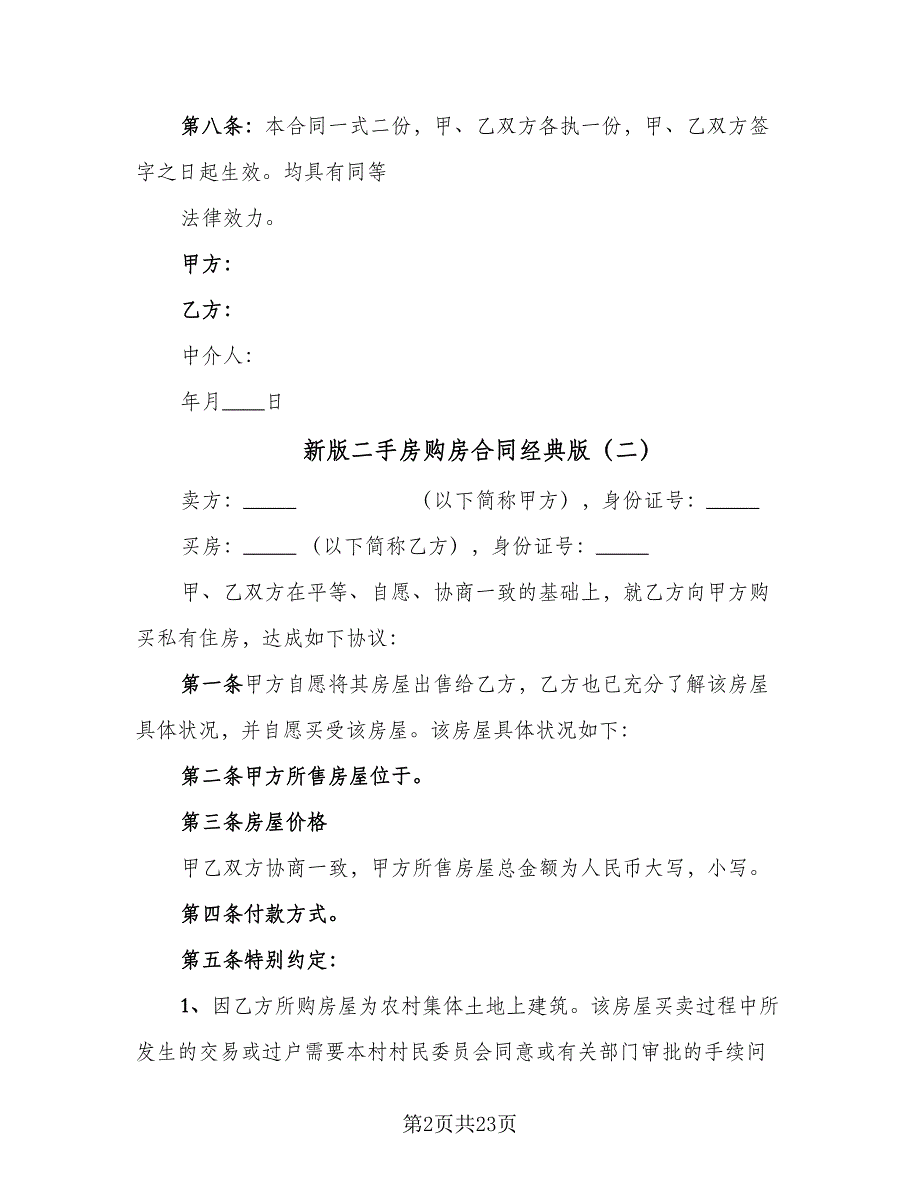 第八条：本合同一式二份，甲、乙双方各执一份，甲、乙双方签
字之日起生效。均具有同等
法律效力。
甲方：
乙方：
中介人：
年月____日
新版二手房购房合同经典版（二）
卖方：_____ （以下简称甲方），身份证号：_____
买房：_____（以下简称乙方），身份证号：_____
甲、乙双方在平等、自愿、协商一致的基础上，就乙方向甲方购
买私有住房，达成如下协议：
第一条甲方自愿将其房屋出售给乙方，乙方也已充分了解该房屋
具体状况，并自愿买受该房屋。该房屋具体状况如下：
第二条甲方所售房屋位于。
第三条房屋价格
甲乙双方协商一致，甲方所售房屋总金额为人民币大写，小写。
第四条付款方式。
第五条特别约定：
1、因乙方所购房屋为农村集体土地上建筑。该房屋买卖过程中所
发生的交易或过户需要本村村民委员会同意或有关部门审批的手续问
第2页共23页